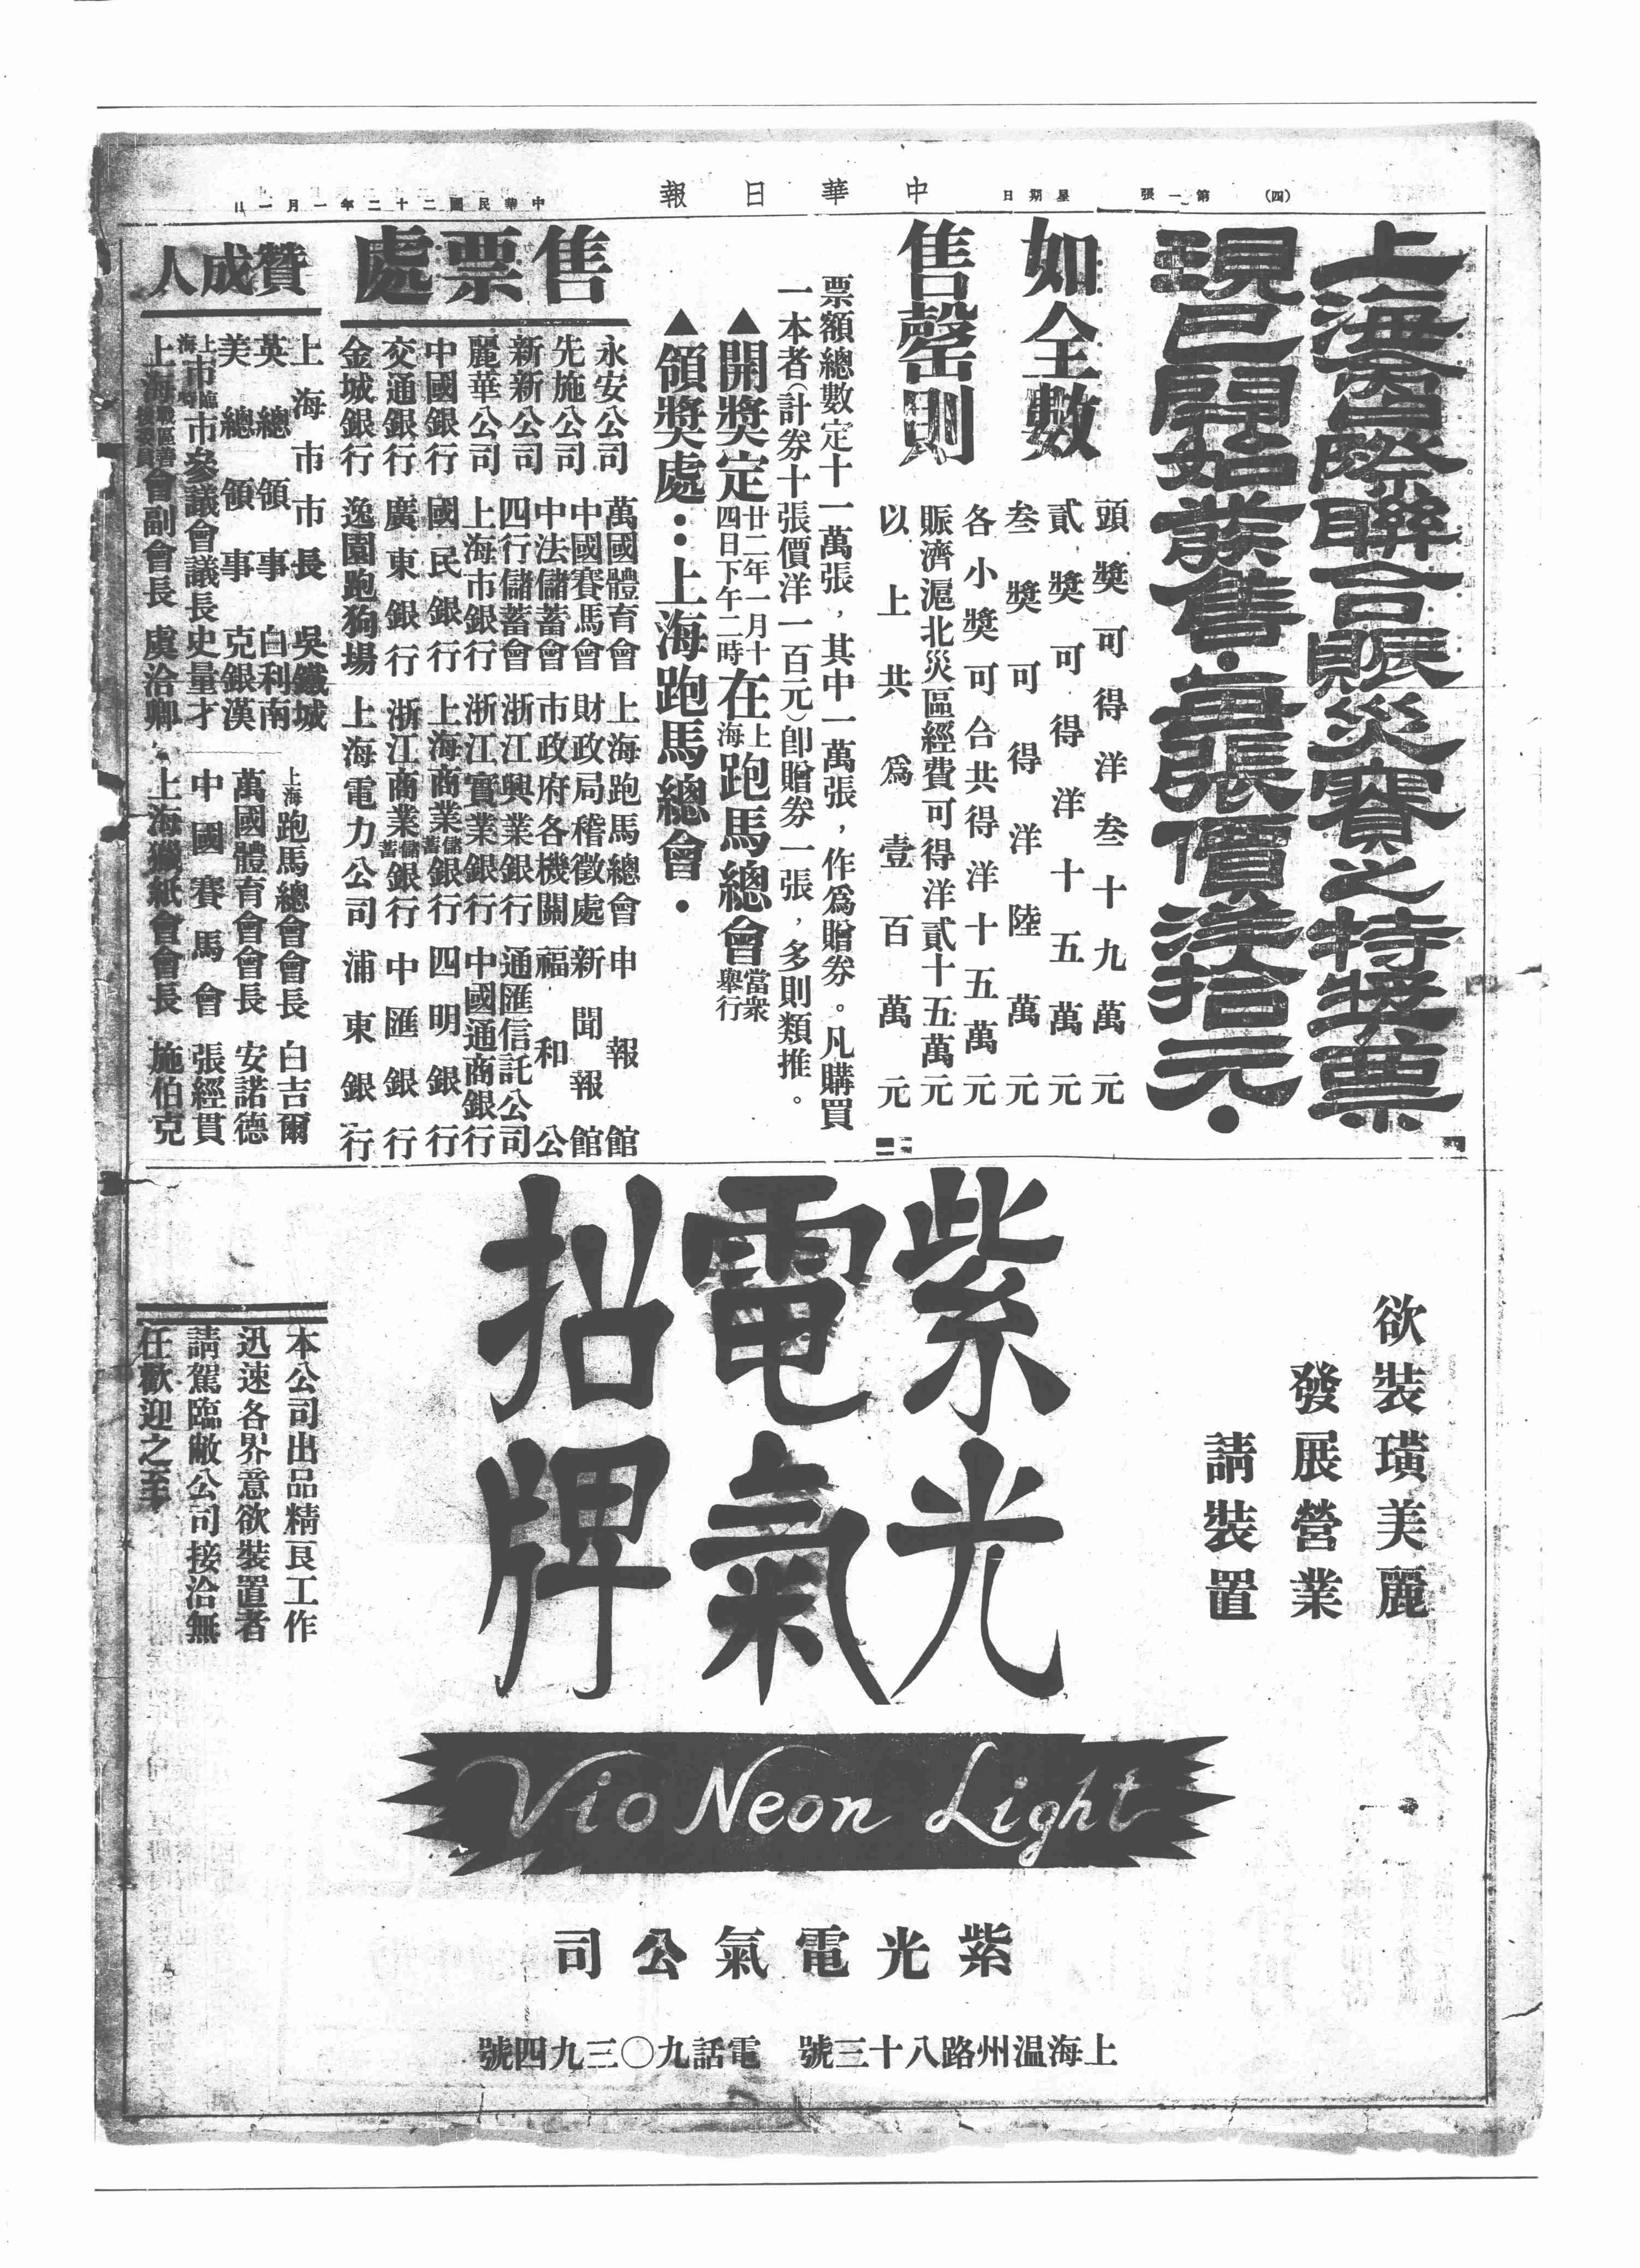 (四)　第一張　星期日
中華日報
中華民國二十二年一月一日
上海國際聯合賑災賽之特獎票
現已開始發售・每張價洋拾元・
如全數
售罄則
頭獎可得洋叁十九萬元
貳獎可得洋十五萬元
叁獎可得洋陸萬元
各小獎可合共得洋十五萬元
賑濟滬北災區經費可得洋貳十五萬元
以上共為壹百萬元
票額總數定十一萬張，其中一萬張，作為贈券。凡購買
一本者(計券十張價洋一百元)卽贈券一張，多則類推。
▲開獎定廿二年一月十四日下午二時在上海跑馬總會當衆舉行
▲領獎處：上海跑馬總會・
售票處
永安公司
先施公司
新新公司
麗華公司
中國銀行
交通銀行
金城銀行
萬國體育會
中國賽馬會
中法儲蓄會
四行儲蓄會
上海市銀行
國民銀行
廣東銀行
逸園跑狗場
上海跑馬總會
財政局稽徵處
市政府各機關
浙江興業銀行
浙江實業銀行
上海商業儲蓄銀行
浙江商業儲蓄銀行
上海電力公司
申報館
新聞報館
福和公
通匯信託公司
中國通商銀行
四明銀行
中匯銀行
浦東銀行
贊成人
上海市市長　吳鐵城
英總領事　白利南
美總領事　克銀漢
上海市臨時市參議會議長　史量才
上海戰區善後委員會副會長　虞洽卿
上海跑馬總會會長　白吉爾
萬國體育會會長　安諾德
中國賽馬會　張經貫
上海獵紙會會長　施伯克
欲裝璜美麗
發展營業
請裝置
紫光
電氣
招牌
本公司出品精良工作
迅速各界意欲裝置者
請駕臨敝公司接洽無
任歡迎之至
Vio Neon Light
紫光電氣公司
上海温州路八十三號　電話九〇三九四號